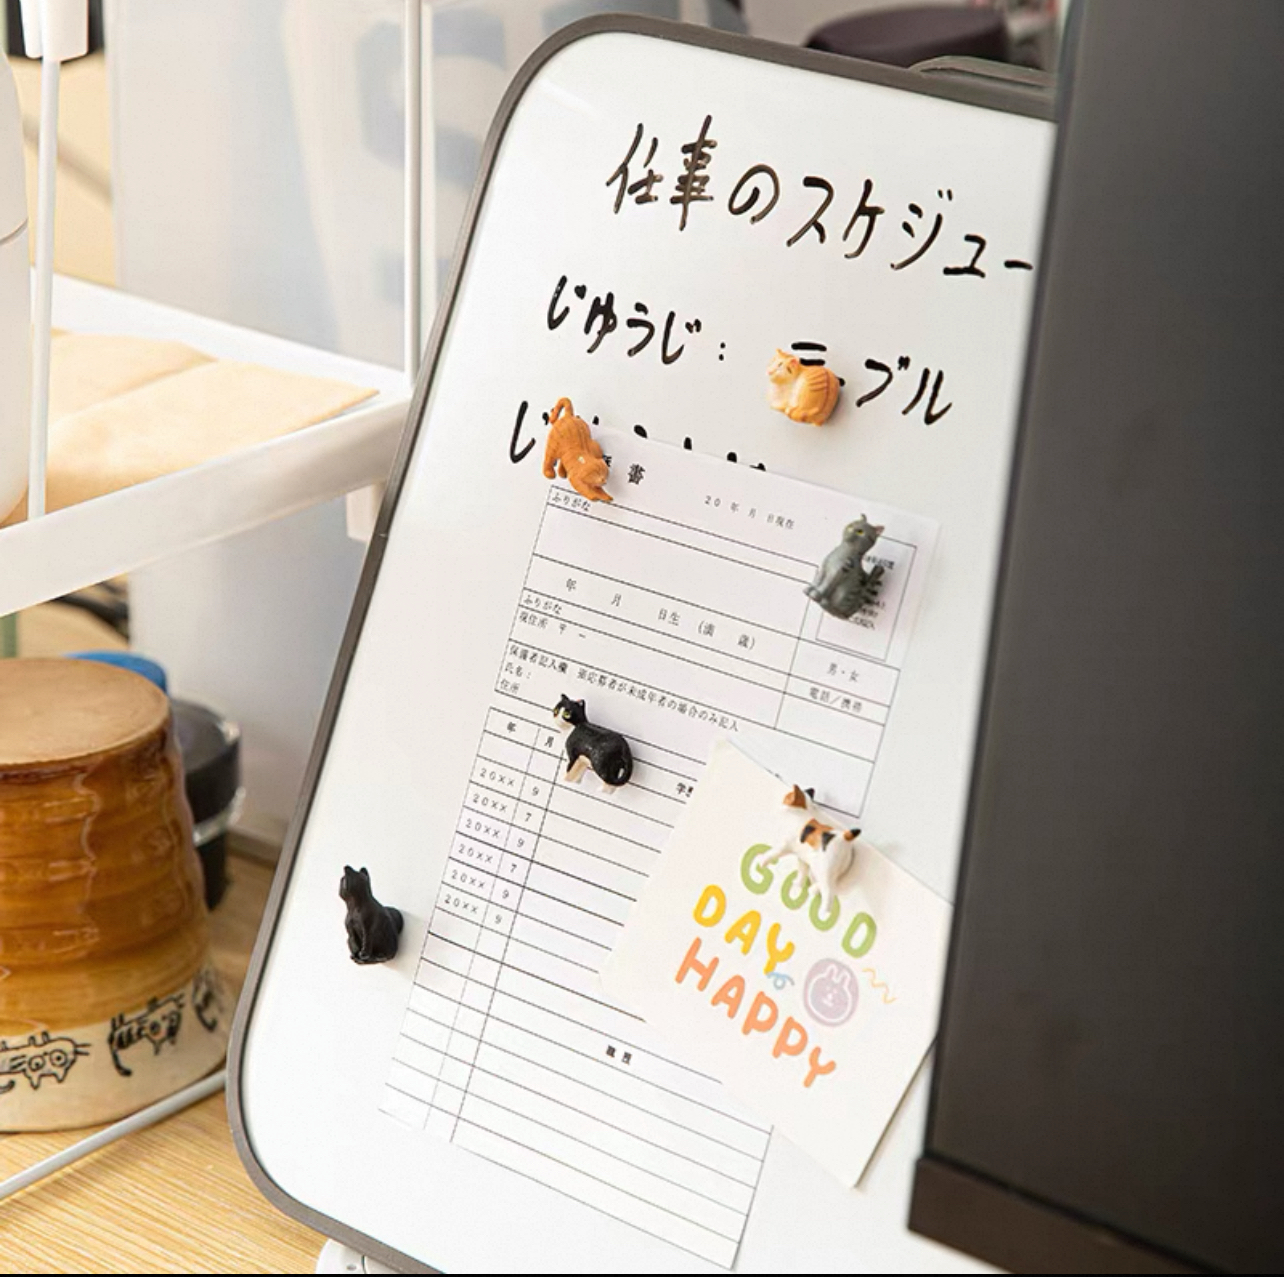 仕事のスケジュー
じゅうじ: ブル
じ
書
20 年 月 日現在
ふりがな
年 月 日生 (満 歳)
男・女
ふりがな
電話/携帯
現住所 〒 －
保護者記入欄 ※応募者が未成年者の場合のみ記入
氏名:
住所
年 月 学歴
20XX 9
20XX 7
20XX 9
20XX 7
20XX 9
20XX 9
職歴
GOOD
DAY
HAPPY